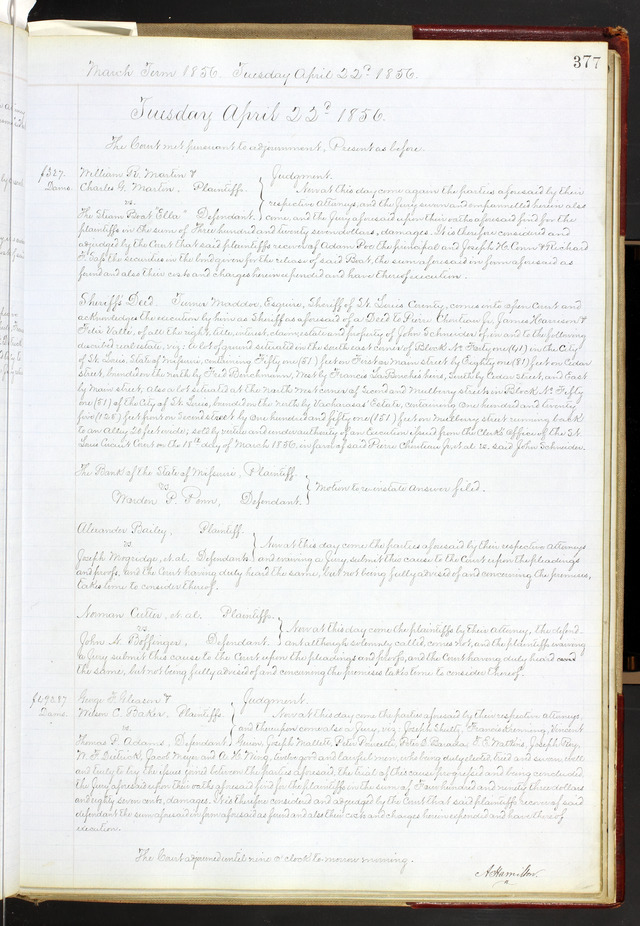 377
March Term 1856. Tuesday April 22d 1856.
Tuesday April 22d 1856.
The Court met pursuant to adjournment, Present as before.
$327. William R. Martin & Judgment.
Dams. Charles G. Martin. Plaintiffs. Now at this day come again the parties aforesaid by their
vs. respective Attorneys, and the Jury sworn and empannelled herein also
The Steam Boat "Ella" Defendant. come, and the Jury aforesaid upon their oaths aforesaid find for the
plaintiffs in the sum of Three hundred and twenty seven dollars, damages. It is therefore considered and
adjudged by the Court that said plaintiffs recover of Adam Poe the principal and Joseph H. Conn & Richard
the securities in the bond given for the release of said Boat, the sum aforesaid in form aforesaid as
found and also their costs and charges herein expended and have thereof execution.
Sheriff's Deed. Turner Maddox, Esquire, Sheriff of St. Louis County, comes into open Court and
acknowledges the execution by him as Sheriff as aforesaid of a Deed to Pierre Chouteau Jr. James Harrison &
Felix Valle, of all the right, title, interest, claim, estate and property of John Schneider of in and to the following
described real estate, viz: a lot of ground situated on the south east corner of Block No. Forty one (41) in the City
of St. Louis, State of Missouri, containing Fifty one (51) feet on First or Main street by Eighty one (81) feet on Cedar
street, bounded on the north by Fred Beuchmann, West by Francis, South by Cedar street, and East
by Main street, also a lot situated at the north west corner of Second and Mulberry streets in Block No. Fifty
one (51) of the City of St. Louis, bounded on the North by Estate, containing one hundred and twenty
five (125) feet front on Second street by one hundred and fifty one (151) feet on Mulberry street running back
to an Alley 20 feet wide; sold by virtue and under authority of an Execution issued from the Clerk's Office of the St.
Louis Circuit Court on the 15th day of March 1856. in favor of said Pierre Chouteau Jr. et al vs. said John Schneider.
The Bank of the State of Missouri, Plaintiff.
vs. Motion to reinstate answer filed.
Warden P. Penn, Defendant.
Alexander Bailey, Plaintiff.
vs. Now at this day come the parties aforesaid by their respective Attorneys
Joseph Mogridge, et al. Defendants. and waiving a Jury submit this cause to the Court upon the pleadings
and proofs, and the Court having duly heard the same, but not being fully advised of and concerning the premises,
takes time to consider thereof.
Norman Cutter, et al. Plaintiffs.
vs. Now at this day come the plaintiffs by their Attorney, the defend-
John N. Bofinger, Defendant. ant although solemnly called, comes not, and the plaintiffs waiving
a Jury submit this cause to the Court upon the pleadings and proofs, and the Court having duly heard
the same, but not being fully advised of and concerning the premises takes time to consider thereof.
George F. Gleason & Judgment.
Dams. Wilson C. Baker. Plaintiffs. Now at this day come the parties aforesaid by their respective attorneys,
vs. and thereupon comes also a Jury, viz: Joseph Shultz, Francis, Vincent
Thomas P. Adams, Defendant. Joseph Mallett, Peter, Peter D. Barada, E. E. Watkins, Joseph Roy,
W. F. Dietrick, Jacob Meyer and A. H. King, twelve good and lawful men, who being duly elected, tried and sworn, well
and truly to try the issue joined between the parties aforesaid, the trial of this cause progressed and being concluded
the Jury aforesaid upon their oaths aforesaid find for the plaintiffs in the sum of Four hundred and ninety three dollars
and eighty seven cents, damages. It is therefore considered and adjudged by the Court that said plaintiffs recover of said
defendant the sum aforesaid in form aforesaid as found and also their costs and charges herein expended and have thereof
execution.
The Court adjourned until nine o'clock to morrow morning.
A. Hamilton.